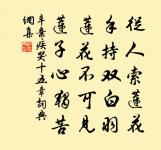 從人索蓮花
手持双白羽
蓮花不可見
蓮子心獨苦
辛棄疾哭十五章詞典
網集